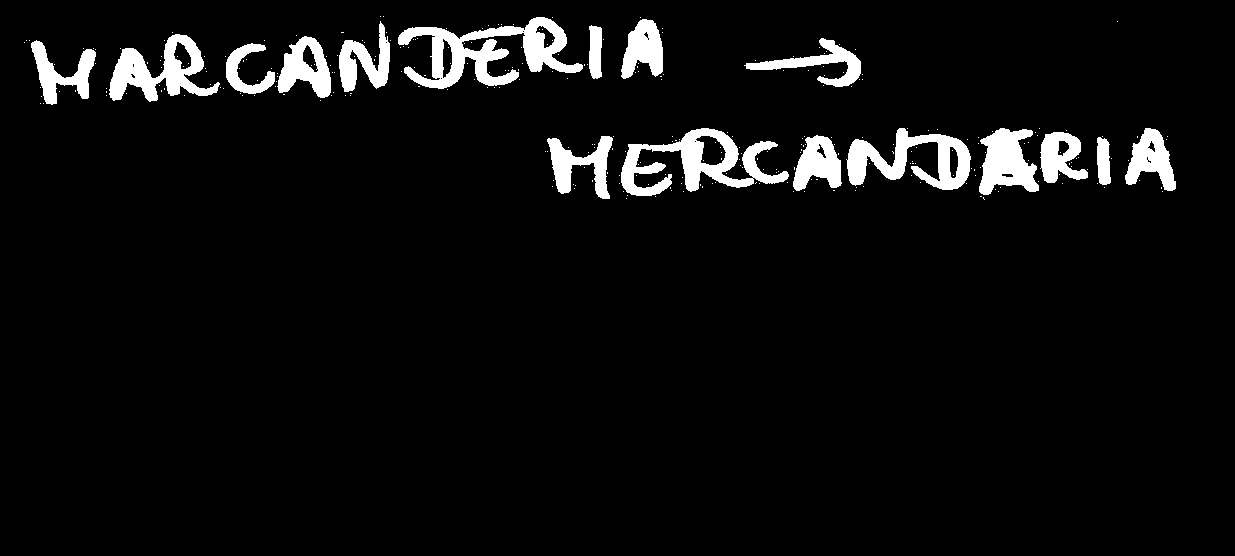 MARCANDERIA →
MERCANDARIA